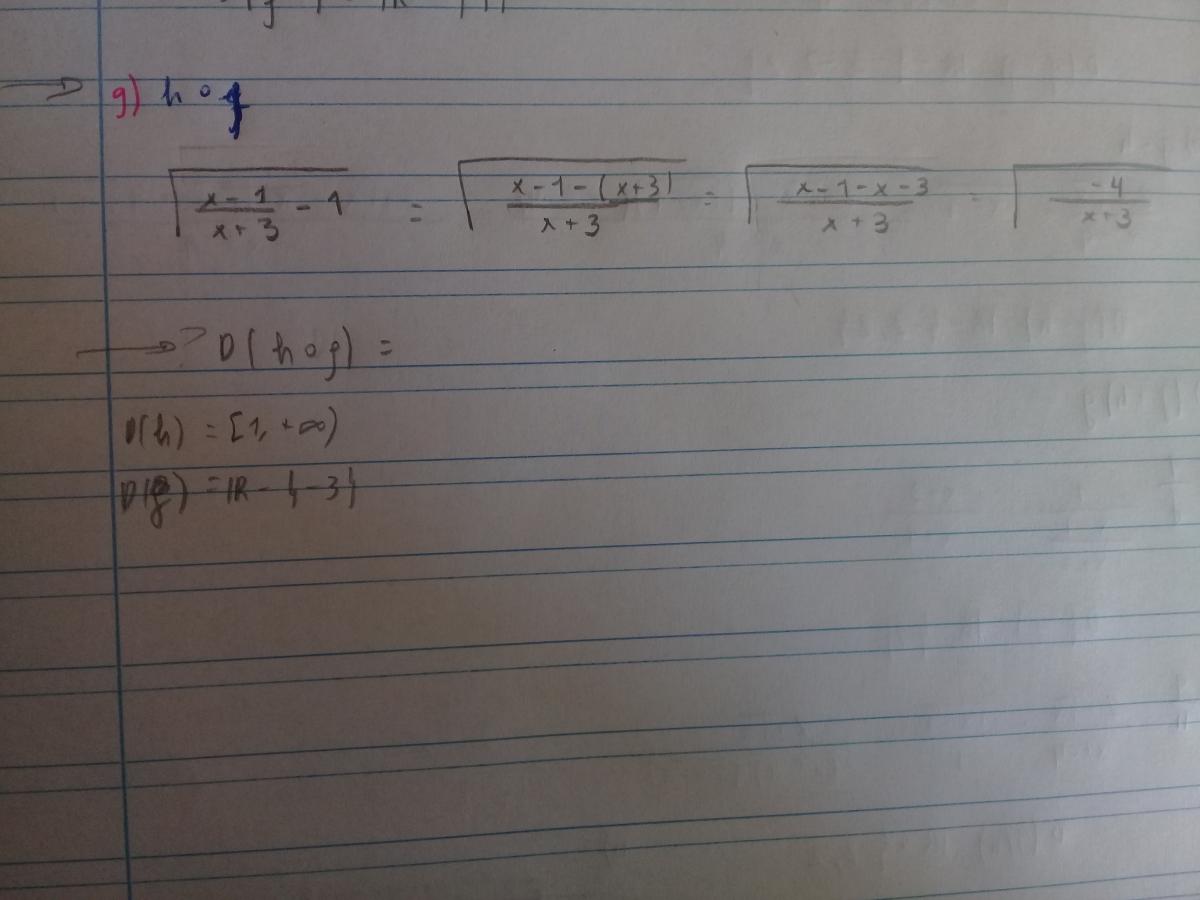 g) h o g
√((x-1)/(x+3) - 1) = √((x-1-(x+3))/(x+3)) = √((x-1-x-3)/(x+3)) = √(-4/(x+3))
→? D(h o g) =
D(h) = [1, +∞)
D(g) = IR - {-3}